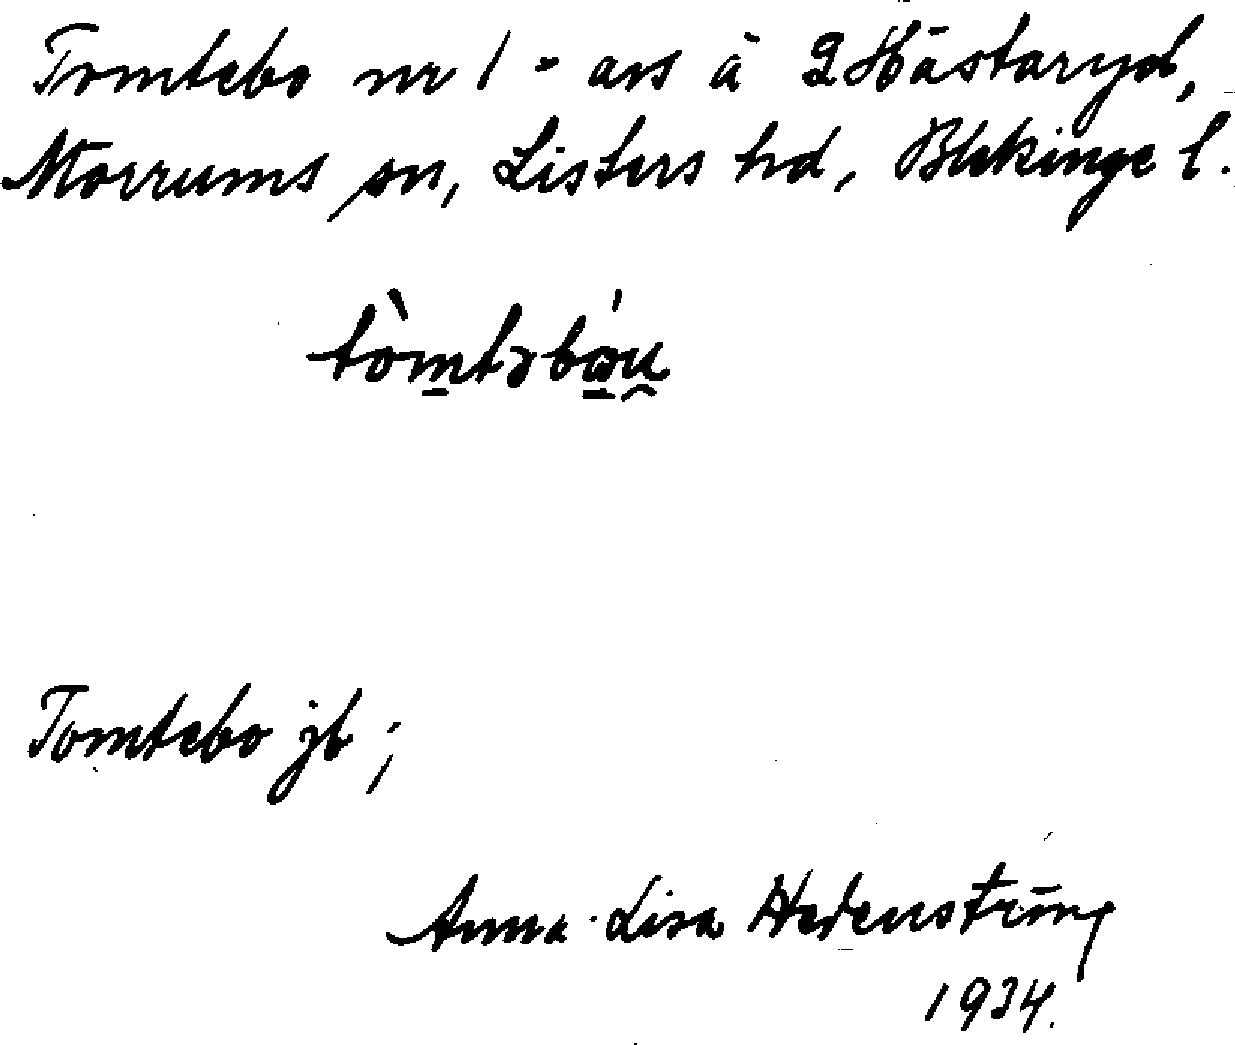 Tomtebo nr 1 - avs å 2 Hästaryd,
Mörrums sn, Listers hd, Blekinge l.
tòmtəbɷ́u̯
Tomtebo jb ;
Anna-Lisa Hedenström
1934.